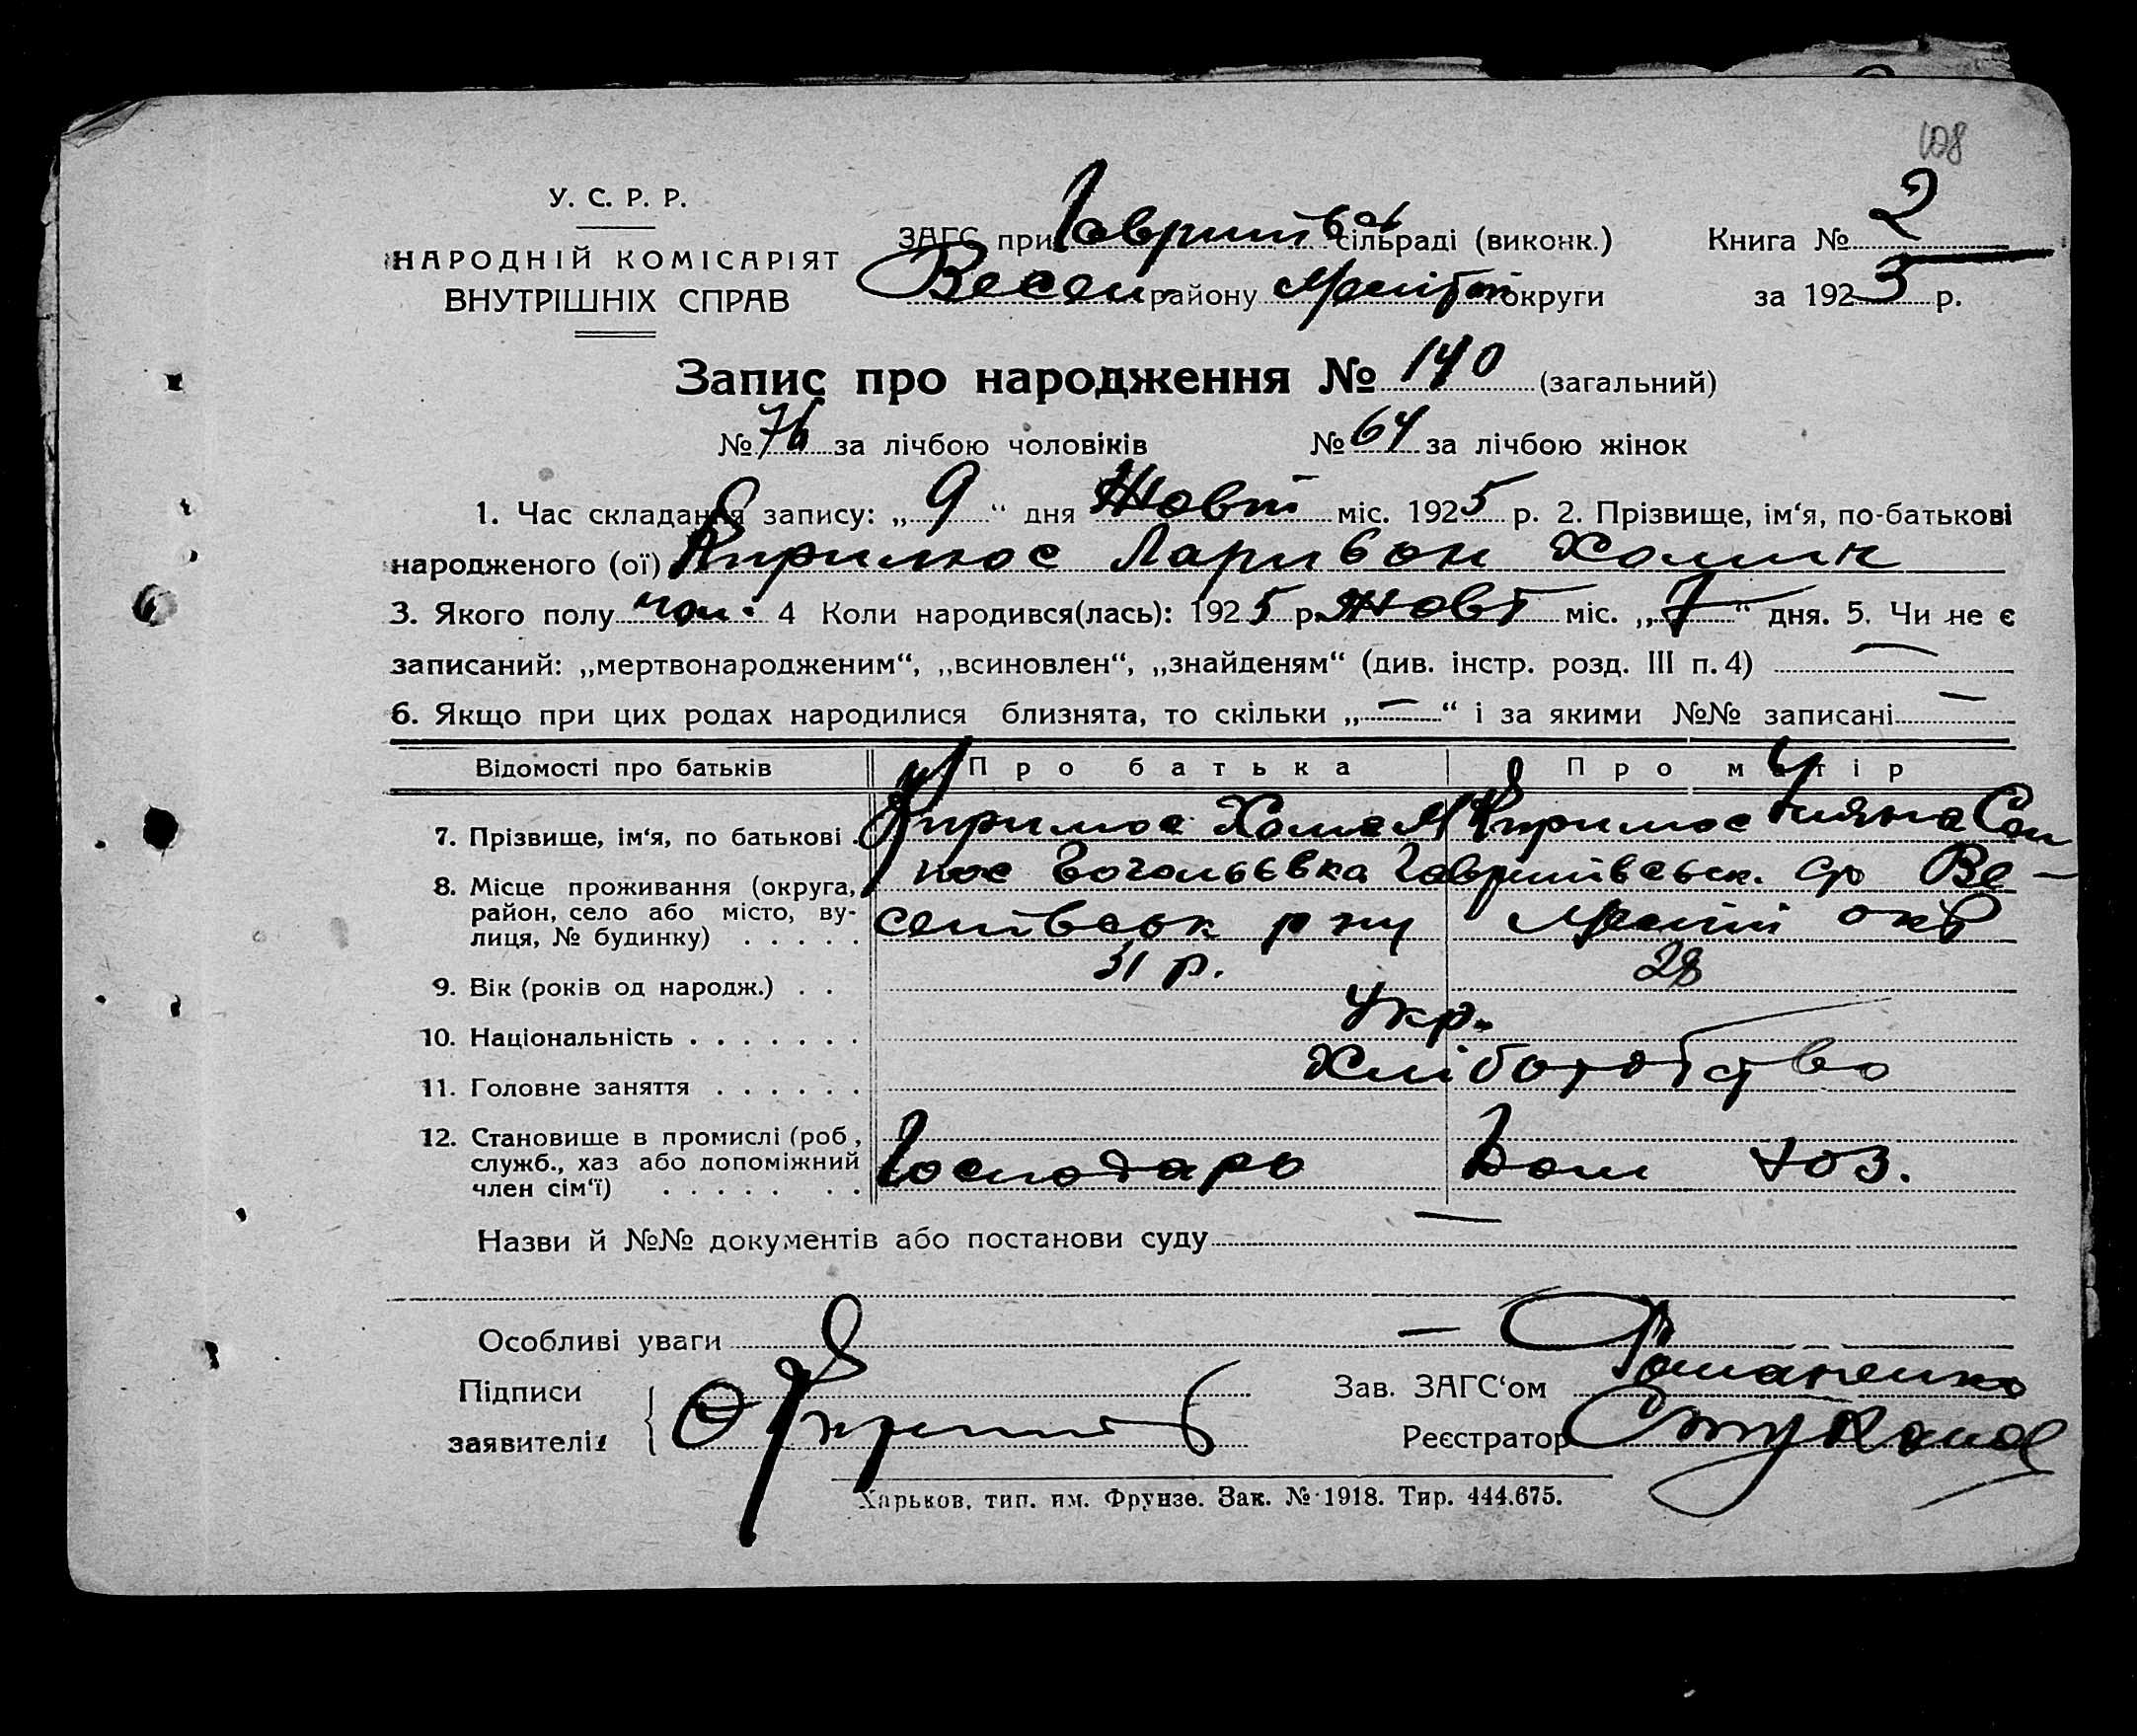 108
У. С. Р. Р.
НАРОДНІЙ КОМІСАРІЯТ
ВНУТРІШНІХ СПРАВ
ЗАГС при Гаврилівсь сільраді (виконк.)
Книга № 2
Весел. району Меліт округи
за 1925 р.
Запис про народження № 140 (загальний)
№ 76 за лічбою чоловіків № 64 за лічбою жінок
1. Час складання запису: „ 9 “ дня Жовт міс. 1925 р. 2. Прізвище, ім‘я, по-батькові
народженого (ої) Ларивон Хомич
3. Якого полу чол. 4 Коли народився(лась): 1925 р. Жовт міс. „ 7 “ дня. 5. Чи не є
записаний: „мертвонародженим“, „всиновлен“, „знайденям“ (див. інстр. розд. III п. 4) —
6. Якщо при цих родах народилися близнята, то скільки „ — “ і за якими №№ записані —
Відомості про батьків Про батька Про матір
7. Прізвище, ім‘я, по батькові . Хома
8. Місце проживання (округа, район, село або місто, вулиця, № будинку) . . . . . пос Гаврилівськ. с/р Ве-
селівськ р-ну Меліт окр
9. Вік (років од народж.) . . 31 р. 28
10. Національність . . . . . . . Укр.
11. Головне заняття . . . . . . Хліборобство
12. Становище в промислі (роб., служб., хаз або допоміжний член сім‘ї) . . . . . . . Господарь Дом хоз.
Назви й №№ документів або постанови суду —
Особливі уваги —
Підписи
заявителів
Зав. ЗАГС‘ом Романенко
Реєстратор
Харьков, тип. им. Фрунзе. Зак. № 1918. Тир. 444.675.